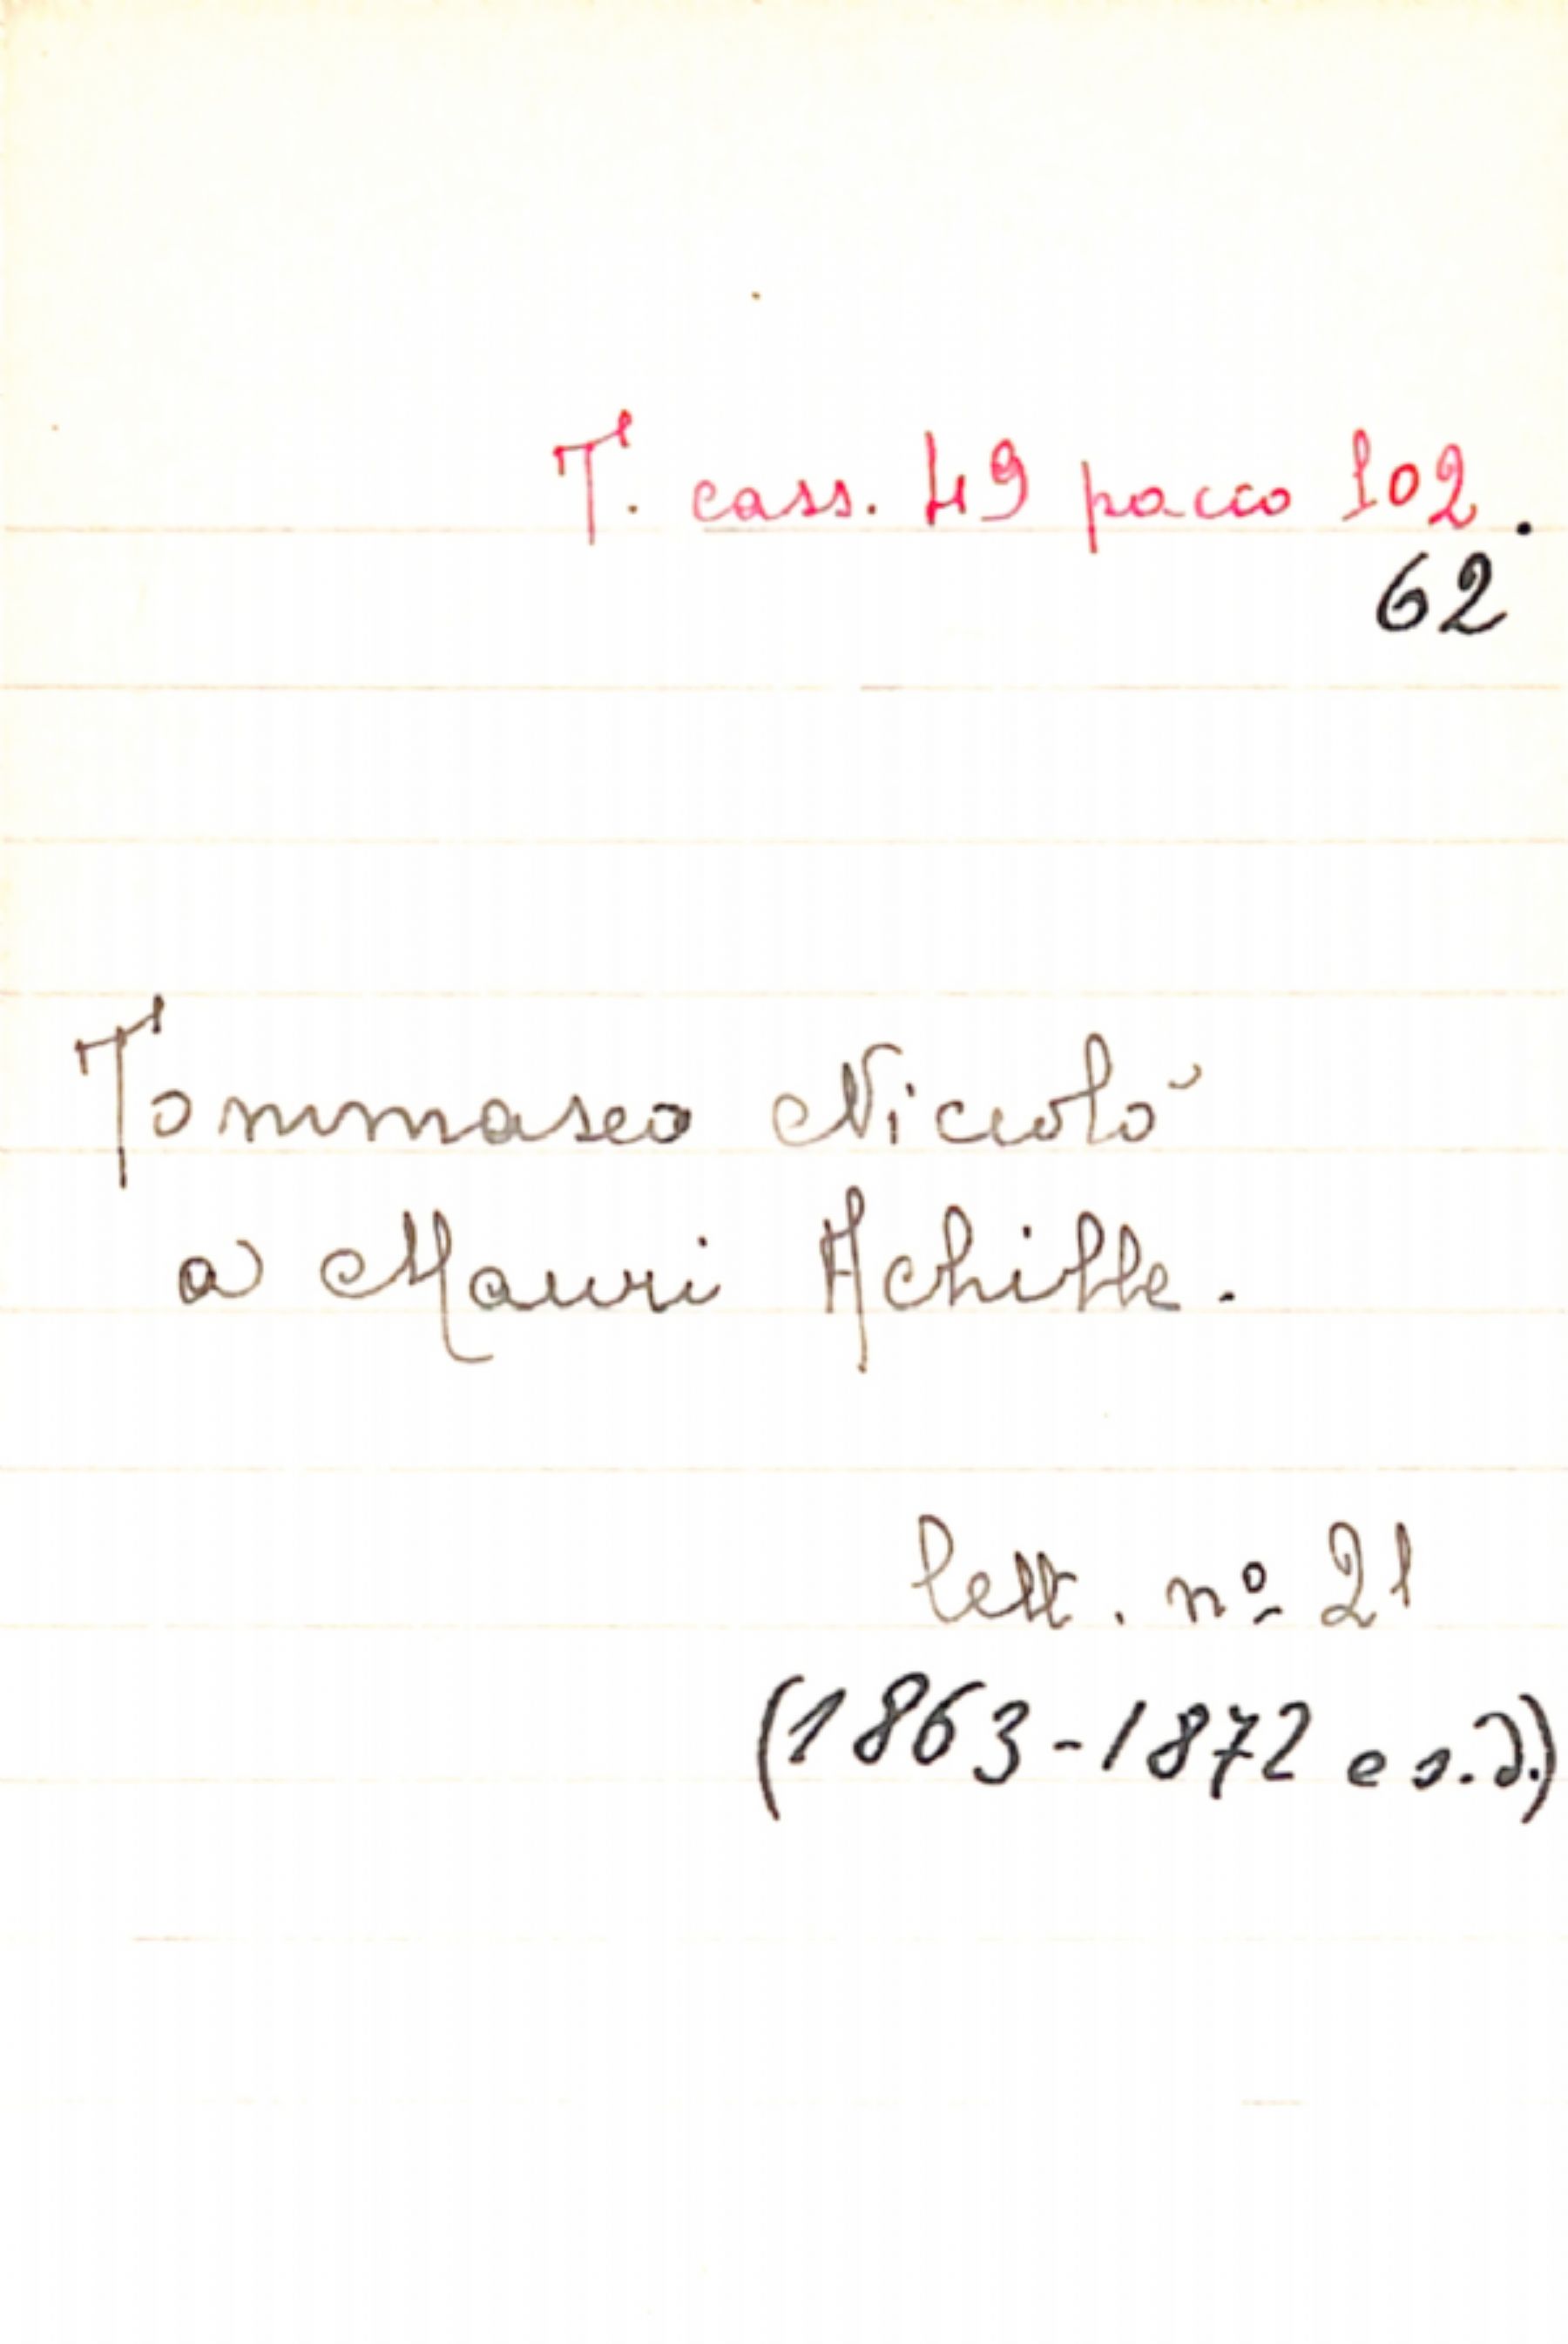 T. cass. 49 pacco 102.
62
Tommaseo Niccolò
a Mauri Achille.
lett. nº 21
(1863-1872 e s.d.)